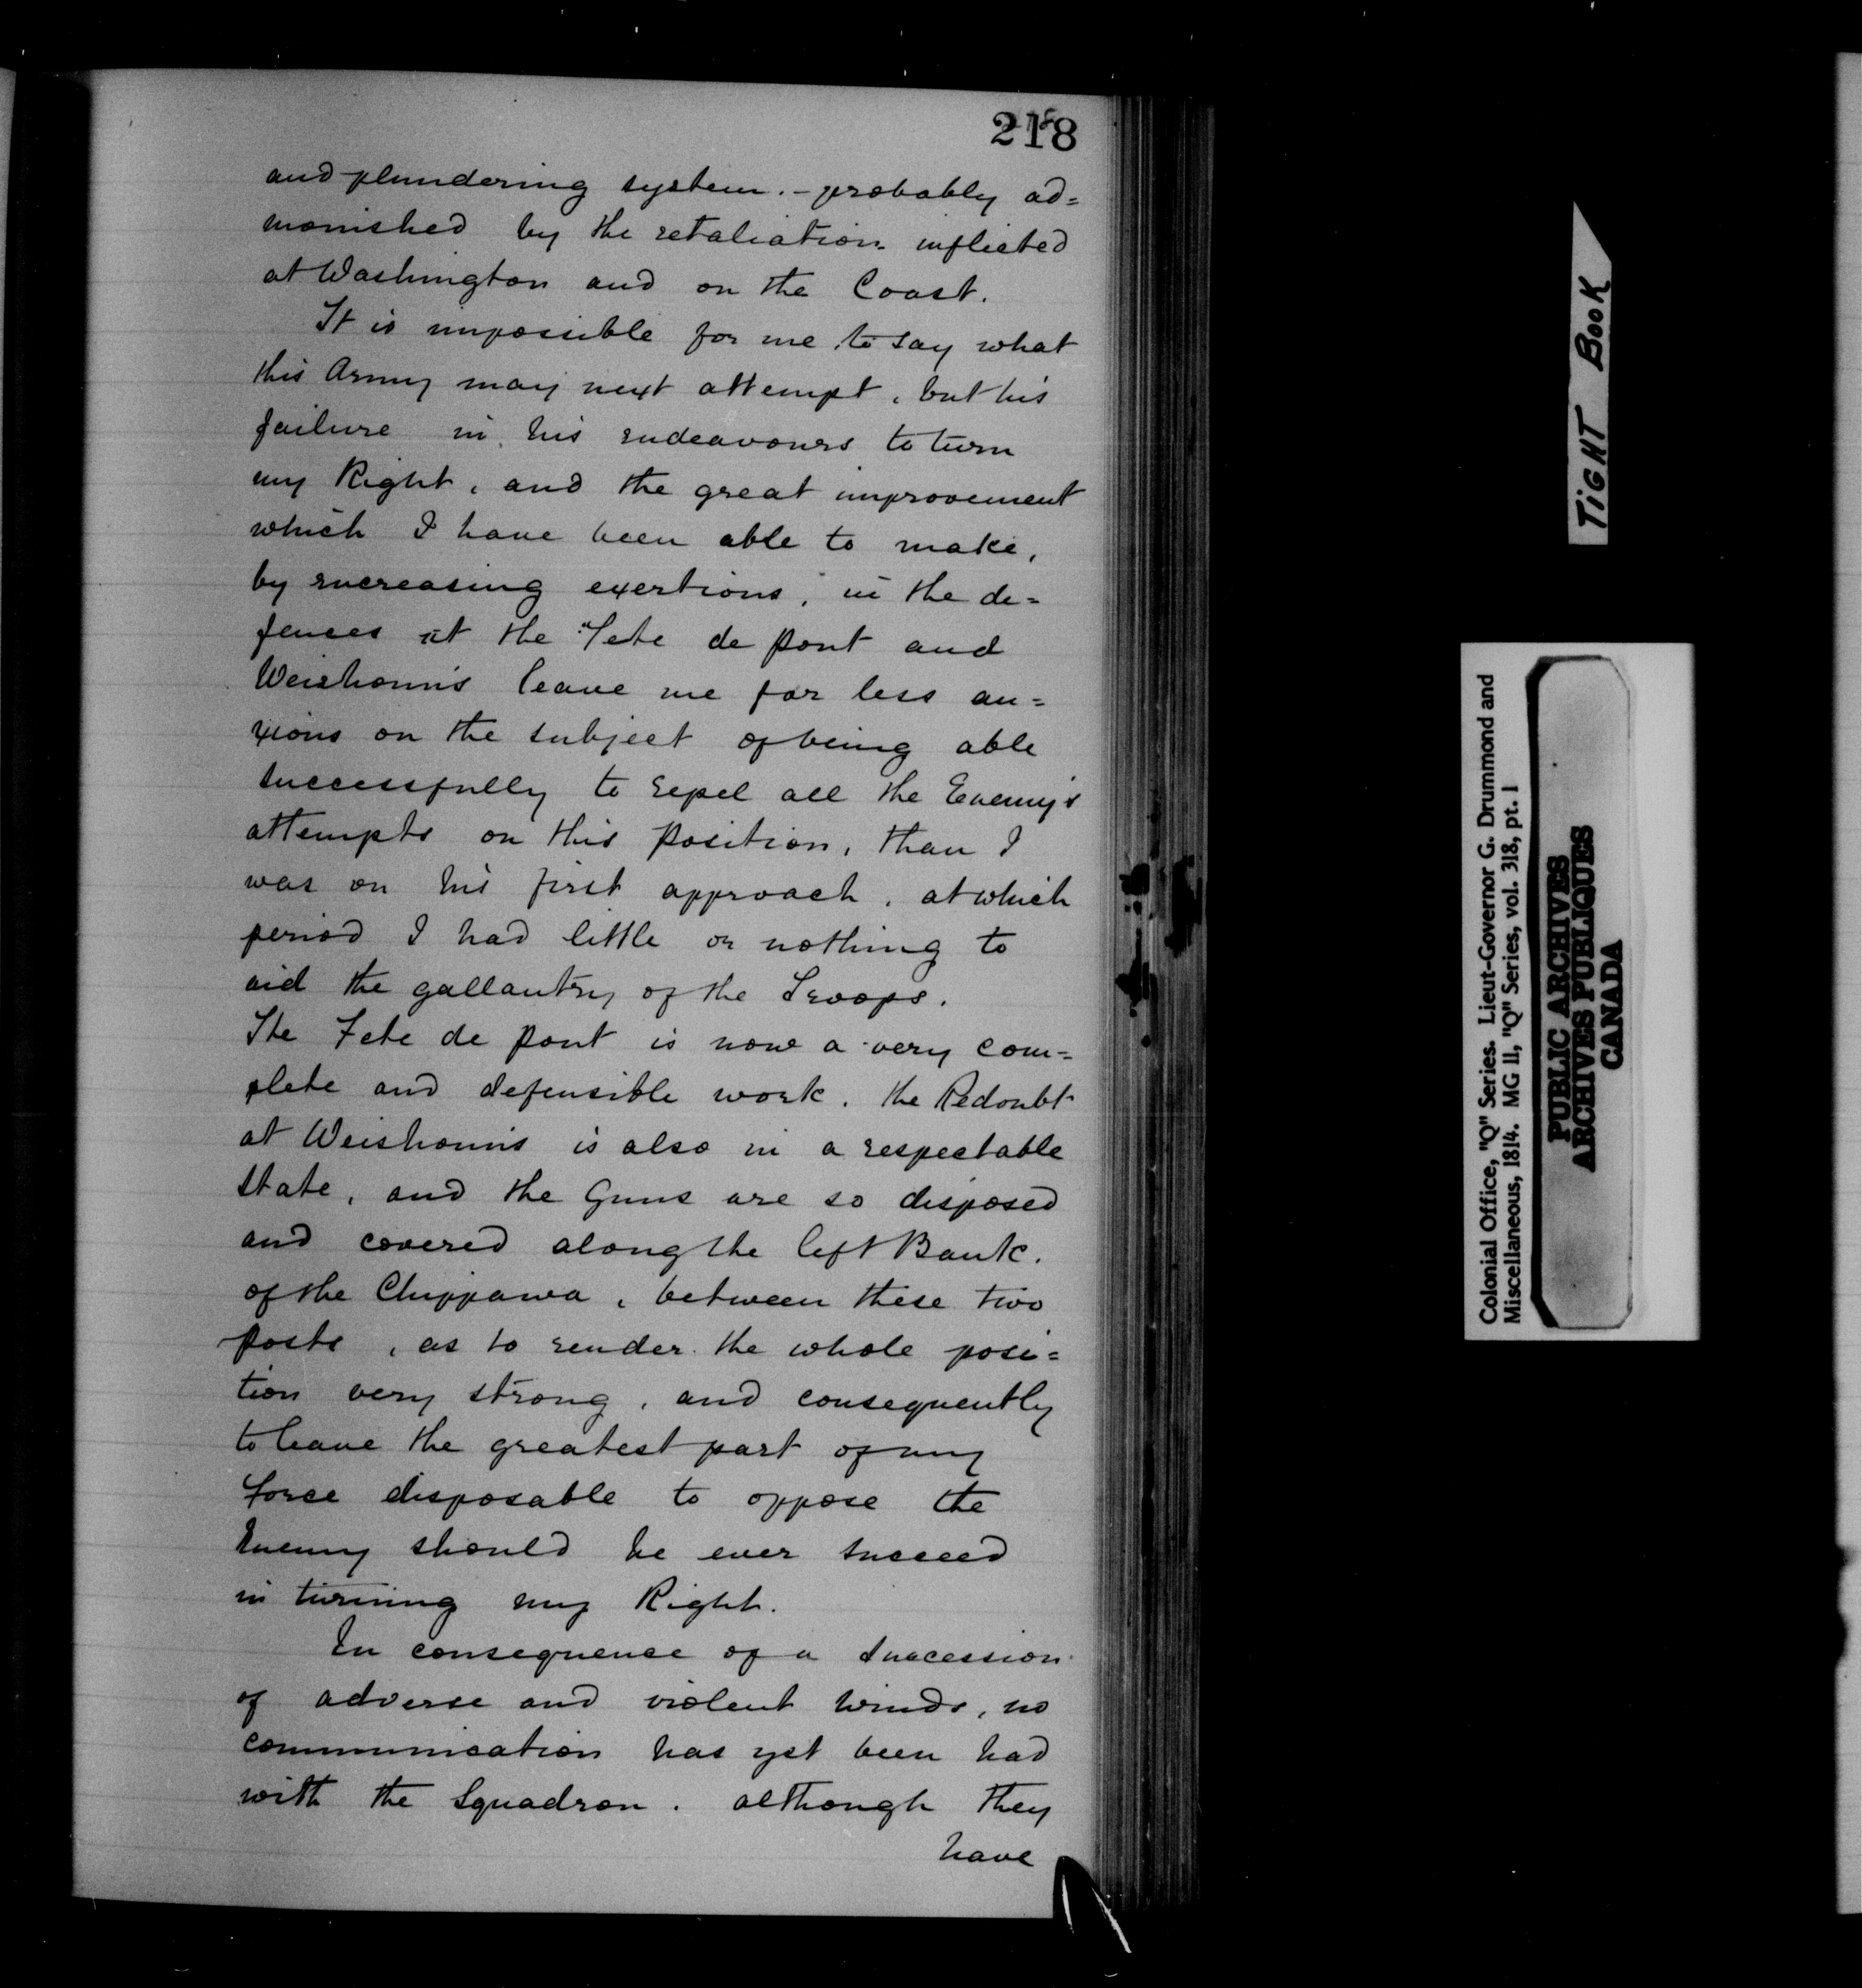 218
and plundering system. - probably ad=
monished by the retaliation inflicted
at Washington and on the Coast.
It is impossible for me to say what
this Army may next attempt, but his
failure in his endeavours to turn
my Right, and the great improvement
which I have been able to make,
by increasing exertions, in the de=
fences at the Tete de pont and
Weishoun's leave me far less an=
xious on the subject of being able
successfully to repel all the Enemy's
attempts on this position, than I
was on his first approach, at which
period I had little or nothing to
aid the gallantry of the Troops.
The Tete de pont is now a very com=
plete and defensible work. the Redoubt
at Weishouns is also in a respectable
state, and the Guns are so disposed
and covered along the left Bank.
of the Chippawa, between these two
posts, as to render the whole posi=
tion very strong, and consequently
to leave the greatest part of my
force disposable to oppose the
Enemy should he ever succeed
in turning my Right.
In consequence of a succession
of adverse and violent winds, no
communication has yet been had
with the Squadron. although they
have
TIGHT BOOK
Colonial Office, "Q" Series. Lieut-Governor G. Drummond and
Miscellaneous, 1814. MG 11, "Q" Series, vol. 318, pt. 1
PUBLIC ARCHIVES
ARCHIVES PUBLIQUES
CANADA